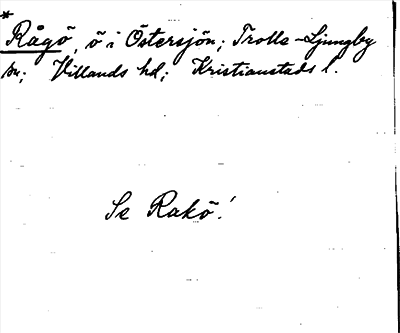 *
Rågö, ö i Östersjön; Trolle-Ljungby
sn; Villands hd; Kristianstads l.
Se Rakö!